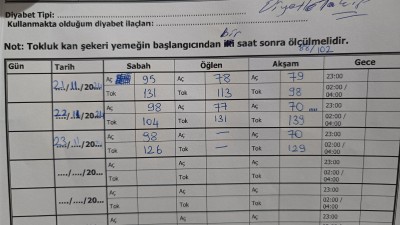 Diyabet Tipi:
Kullanmakta olduğum diyabet ilaçları:
bir
Not: Tokluk kan şekeri yemeğin başlangıcından saat sonra ölçülmelidir.
Gün Tarih Sabah Öğlen Akşam Gece
21/11/20... Aç 95 Aç 78 Aç 79 23:00
Tok 131 Tok 113 Tok 98 02:00 / 04:00
22/11/20... Aç 98 Aç 77 Aç 70 23:00
Tok 104 Tok 131 Tok 139 02:00 / 04:00
23/11/20... Aç 98 Aç — Aç 70 23:00
Tok 126 Tok — Tok 129 02:00 / 04:00
..../..../20... Aç Aç Aç 23:00
Tok Tok Tok 02:00 / 04:00
..../..../20... Aç Aç Aç 23:00
Tok Tok Tok 02:00 / 04:00
Aç Aç Aç 23:00